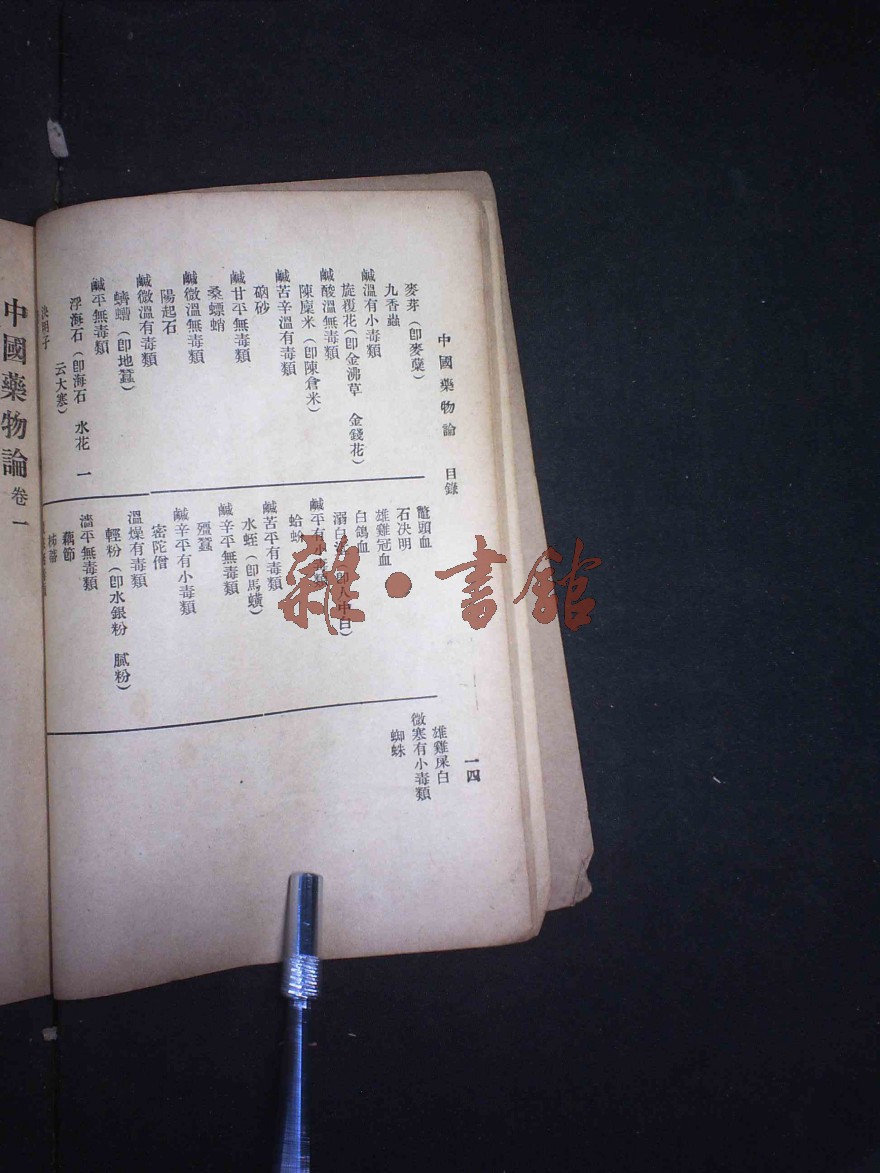 中國藥物論　目錄　一四
麥芽（即麥蘗）
九香蟲
鹹溫有小毒類
旋覆花（即金沸草　金錢花）
鹹酸溫無毒類
陳廩米（即陳倉米）
鹹苦辛溫有毒類
硇砂
鹹甘平無毒類
桑螵蛸
鹹微溫無毒類
陽起石
鹹微溫有毒類
蠐螬（即地蠶）
鹹平無毒類
浮海石（即海石　水花　一
云大寒）
決明子
鼈頭血
石決明
雄雞冠血
白鴿血
溺白（即人中白）
鹹平有小毒類
蛤蚧
鹹苦平有毒類
水蛭（即馬蟥）
鹹辛平無毒類
殭蠶
鹹辛平有小毒類
密陀僧
溫燥有毒類
輕粉（即水銀粉　膩粉）
濇平無毒類
藕節
柿蒂
雄雞屎白
微寒有小毒類
蜘蛛
中國藥物論卷一
雜·書館